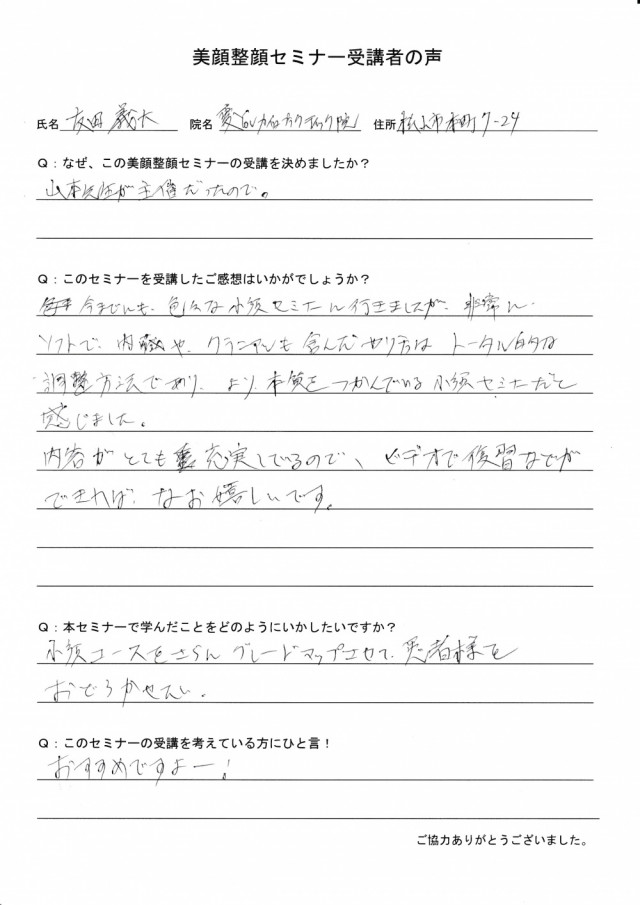 美顔整顔セミナー受講者の声
氏名 友田 義大 院名 愛和カイロプラクティック院 住所 松山市本町7-24
Q：なぜ、この美顔整顔セミナーの受講を決めましたか？
山本先生が主催だったので。
Q：このセミナーを受講したご感想はいかがでしょうか？
今までにも、色々な小顔セミナーに行きましたが、非常に
ソフトで、内臓や、クラニアルも含んだやり方は トータル的な
調整方法であり、より、本質をつかんでいる小顔セミナーだと
感じました。
内容がとても充実しているので、ビデオで復習などが
できれば、なお嬉しいです。
Q：本セミナーで学んだことをどのようにいかしたいですか？
小顔コースをさらに グレードアップさせて、患者様を
おどろかせたい。
Q：このセミナーの受講を考えている方にひと言！
おすすめですよー！
ご協力ありがとうございました。